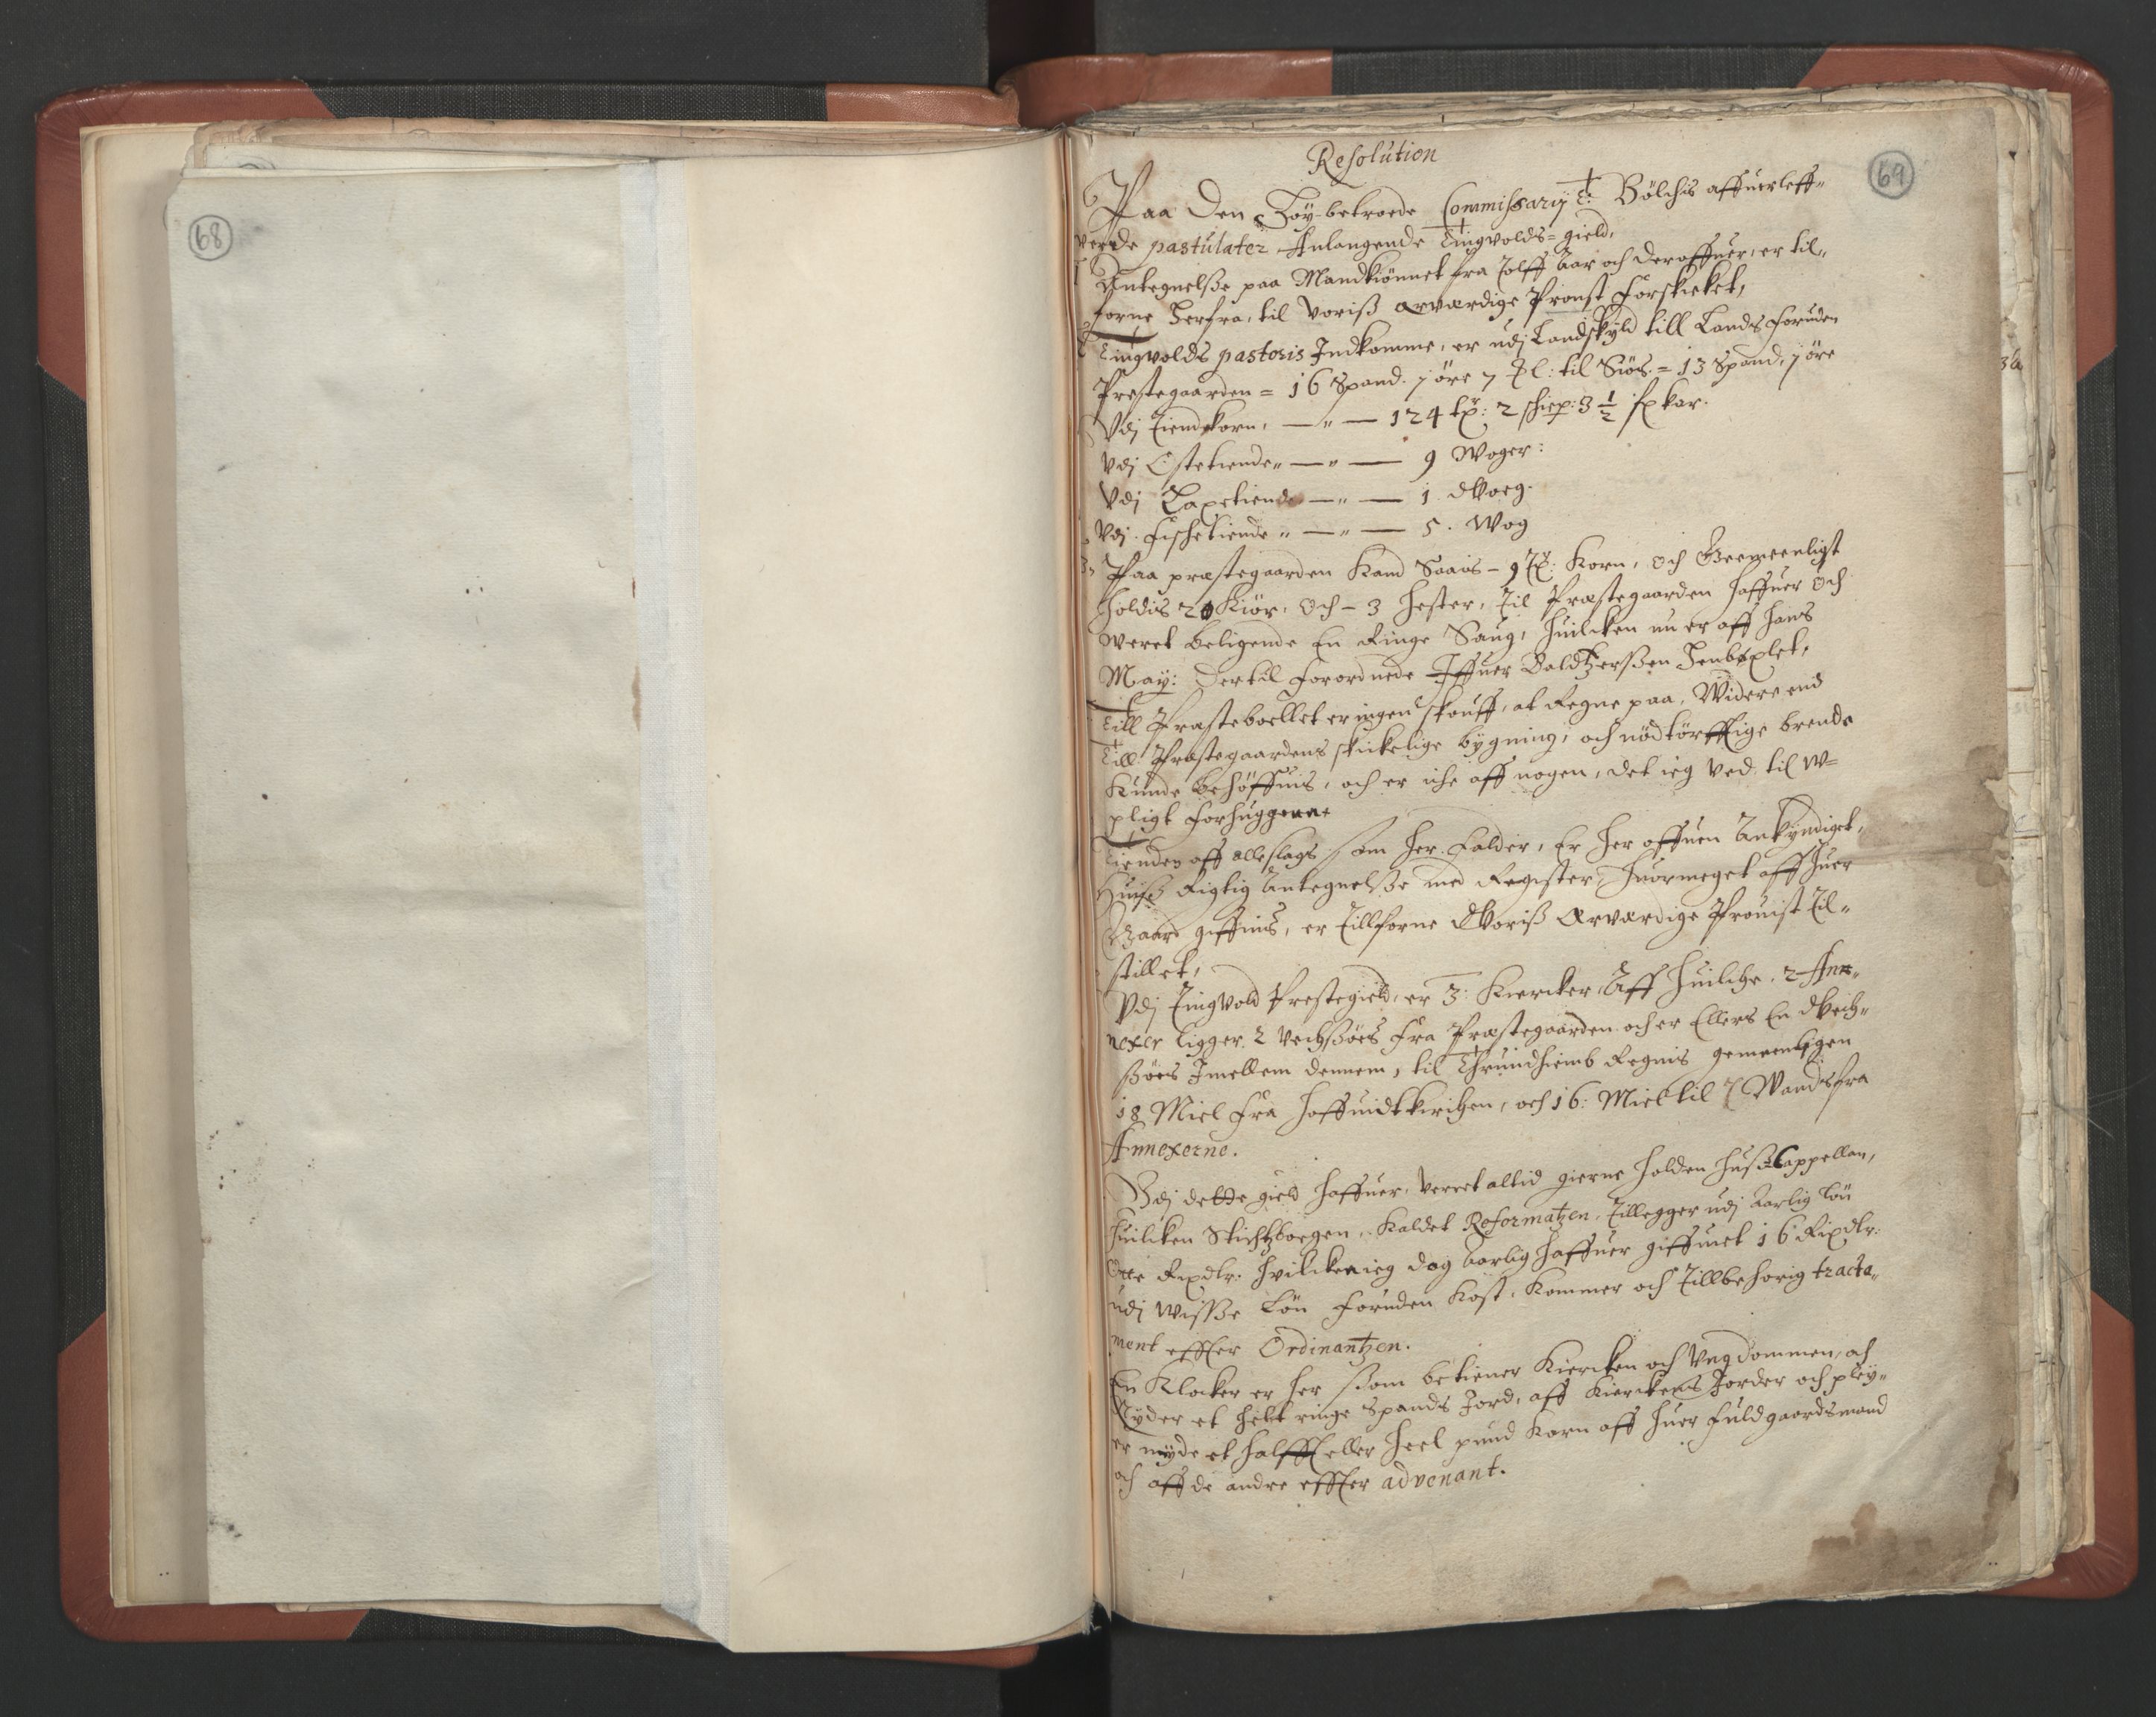 68
69
Resolution
Paa Den Høy-betroede Commissarij T: Bölchis affuerleff-
verede pastulater Anlangende Tingvolds-gield,
Antegnelsße paa Mandkiönnet fra Tolff Aar och deroffuer, er til-
forne Herfra, til Voriß ærværdige Proust forskicket,
Tingvolds pastoris Indkomme, er udj Landskyld till Lands foruden
Prestegaarden = 16 Spand. 1 öre 7 ℔l: til Siös = 13 Spand, 1 öre
Vdj Tiendkorn, — " — 124 tr: 2 schiep: 3 1/2 kar.
Vdj Ostetiende " — " — 9 Woger:
Vdj Laxetiende — " — 1 Woeg.
Vdj Fischetiende " — " — 5. Wog
3. Paa præstegaarden Kand Saais - 9 Tr: Korn, Och Geemeenligt
holdis 20 Kiör, Och - 3 Hester, Til Præstegaarden haffuer Och
weret beligende En Ringe Saug, huilcken nu er aff Hans
May: Dertil forordnede Iffuer Baldtzerßen Henbyxlet,
Till Præsteboellet er ingen skouff, at Regne paa, Widere end
Till Præstegaardens skickelige bygning, och nödtörfftige brende
Kunde behöffuis, och er iche aff nogen, det ieg ved, til W-
pligt forhuggenn
Tienden aff alleslags som her falder, Er her offuen Ankyndiget,
Huiß Rigtig Antegnelße med Register, huormeget aff huer
Gaard giffuis, er Tillforne Woriß Ærværdige Prouist Til-
stillet,
Vdj Tingvold Prestegield, er 3: Kiercker, Aff huilche, 2 Ann-
nexer ligger, 2 Vechßöes fra Præstegaarden och er Ellers En Wech-
ßöes Imellem dennem, til Thrundhiemb Regnis gemeenligen
18 Miel fra Hoffuidtkirchen, och 16: Miel til Wands fra
Annexerne.
Vdj dette gield haffuer, verret altid gierne holden Huß-Cappellan,
huilcken Stichtzboegen, Kaldet Reformatzen, Tillegger udj Aarlig lön
Otte Rixdlr. huilcken ieg dog Aarlig haffuer giffuet 16 Rixdlr:
udj wisße lön foruden Kost, Kammer och Tillbehörig tracta-
ment effter Ordinantzen.
En Klocker er her som betiener Kiercken och Ungdommen, och
Nyder et helt ringe Spands Jord, aff Kierckens Jorder och pley-
er nyde et halfft eller heel pund Korn aff huer fuldgaardsmand
och aff de andre effter advenant.